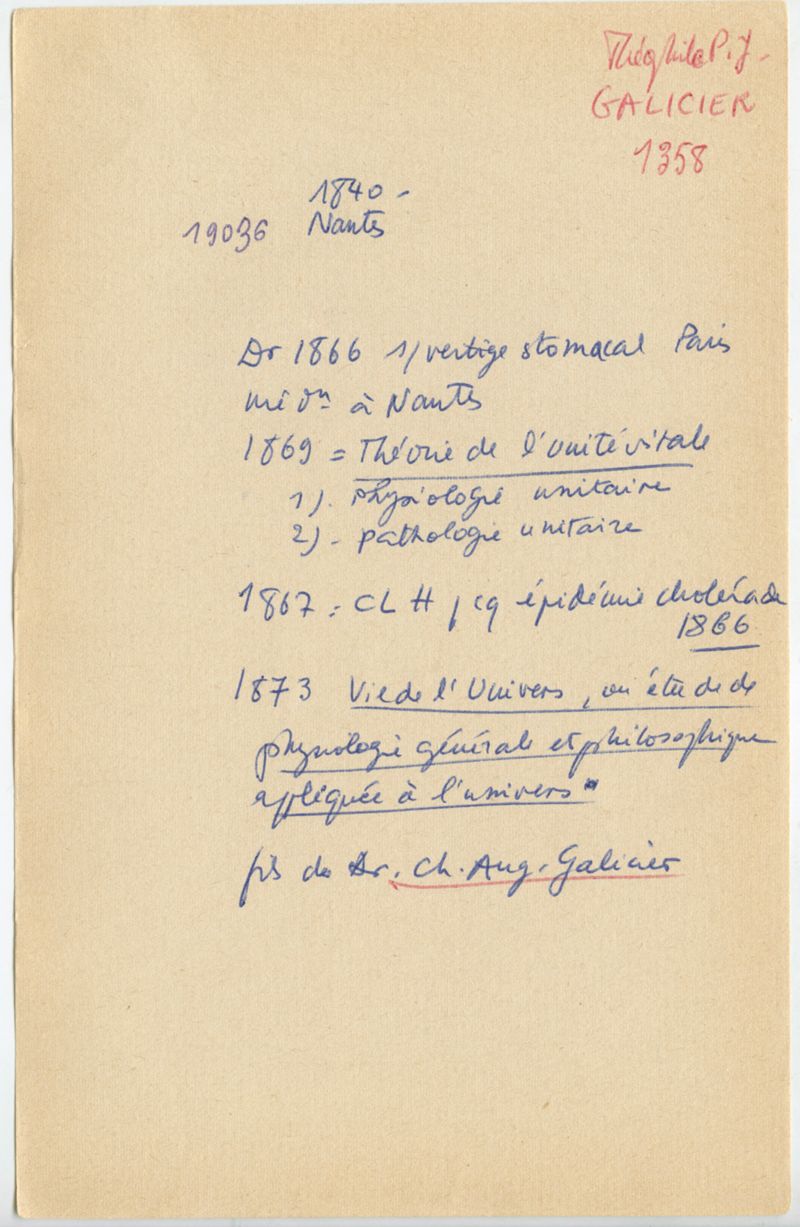 Théophile P. J.
GALICIER
1358
1840 -
19036 Nantes
Dr 1866 s/vertige stomacal Paris
à Nantes
1869 = Théorie de l'unité vitale
1). physiologie unitaire
2) - pathologie unitaire
1867 = CL H, cq épidémie cholérade
1866
1873 Vie de l'Univers, ou étude de
physiologie générale et philosophique
appliquée à l'univers"
fils du Dr. Ch. Aug. Galicier